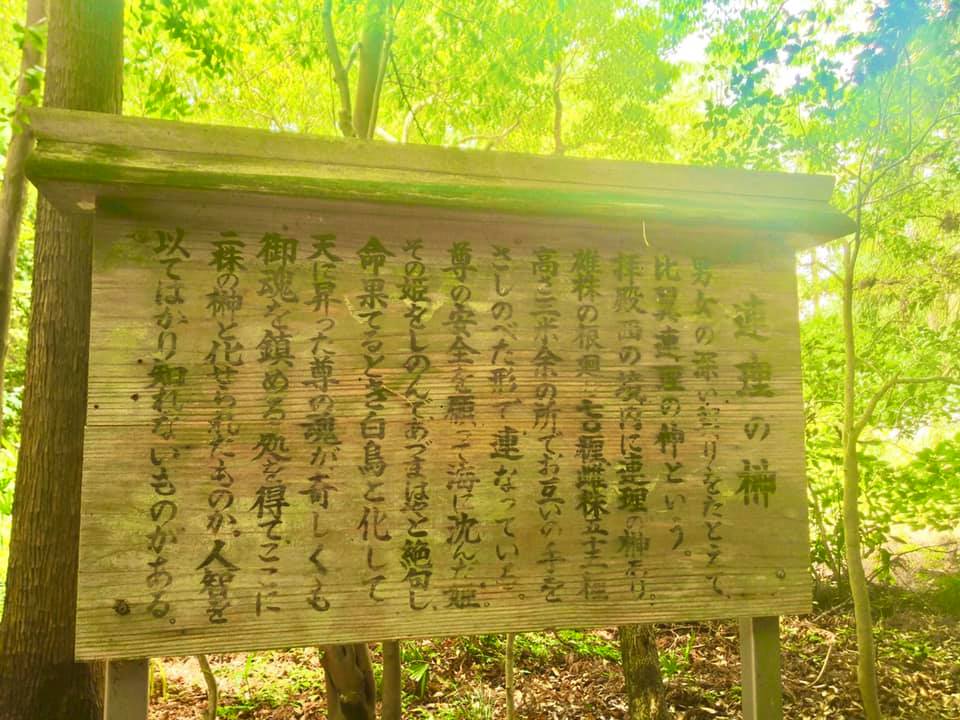 連理の榊
男女の深い契りをたとえて、
比翼連理の枠という。
拝殿西の境内に連理の榊あり。
雄株の根廻 七〇糎 雌株五十二糎
高さ三米余の所でお互いの手を
さしのべた形で連なっている。
尊の安全を願って海に沈んだ姫
その姫をしのんであづまはやと絶句し、
命果てるとき白鳥と化して
天に昇った尊の魂が奇しくも
御魂を鎮める処を得てここに
二株の榊と化せられたものか。人智を
以てはかり知れないものがある。